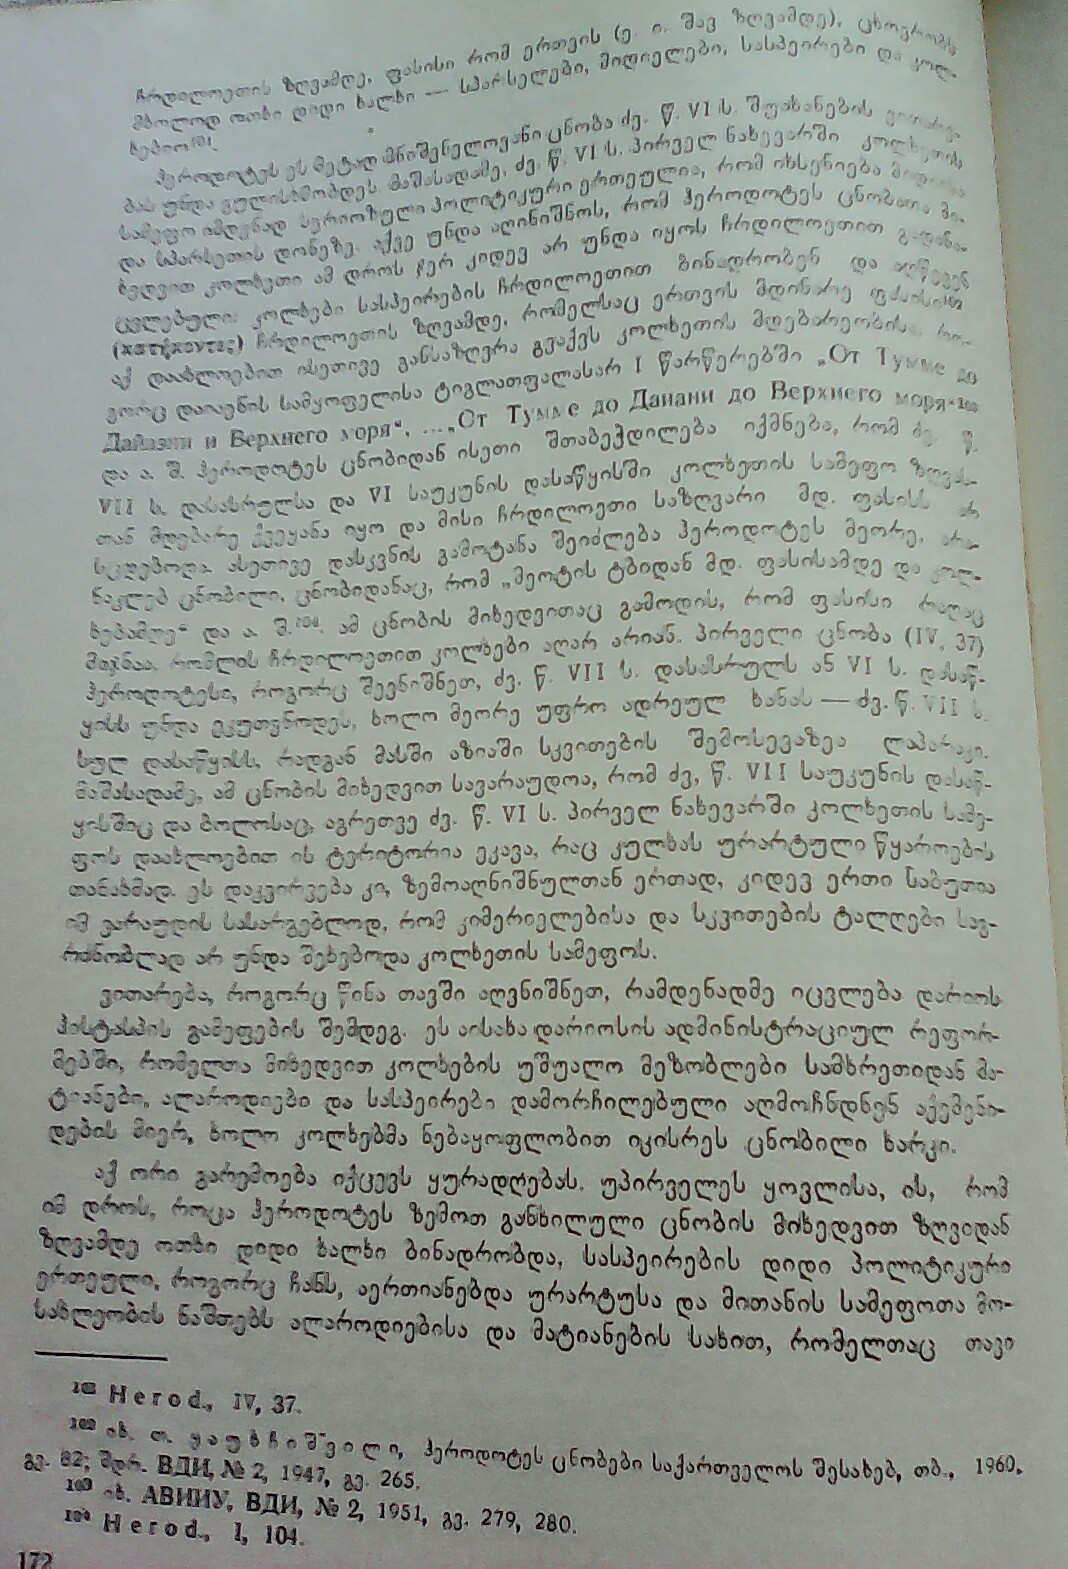 ჩრდილოეთის ზღვამდე, ფასისი რომ ერთვის (ე. ი. შავ ზღვამდე), ცხოვრობს
მხოლოდ ოთხი დიდი ხალხი — სპარსელები, მიდიელები, სასპეირები და კოლ-
ხებიო¹⁰¹.
ჰეროდოტეს ეს მეტად მნიშვნელოვანი ცნობა ძვ. წ. VI ს. შუახანების ვითარე-
ბას უნდა გულისხმობდეს. მაშასადამე, ძვ. წ. VI ს. პირველ ნახევარში კოლხეთის
სამეფო იმდენად სერიოზული პოლიტიკური ერთეულია, რომ იხსენიება მიდიისა
და სპარსეთის დონეზე. აქვე უნდა აღინიშნოს, რომ ჰეროდოტეს ცნობათა მი-
ხედვით კოლხეთი ამ დროს ჯერ კიდევ არ უნდა იყოს ჩრდილოეთით გადანა-
ცვლებული: კოლხები სასპეირების ჩრდილოეთით ბინადრობენ და აღწევენ
ჩრდილოეთის ზღვამდე, რომელსაც ერთვის მდინარე ფასისი¹⁰²
აქ დაახლოებით ისეთივე განსაზღვრა გვაქვს კოლხეთის მდებარეობისა, რო-
გორც დაიაენის სამყოფელისა ტიგლათფალასარ I წარწერებში „От Тумме до
Дайаэни и Верхнего моря“, ...„От Тумме до Даиани до Верхнего моря“¹⁰³
და ა. შ. ჰეროდოტეს ცნობიდან ისეთი შთაბეჭდილება იქმნება, რომ ძვ. წ.
VII ს. დასასრულსა და VI საუკუნის დასაწყისში კოლხეთის სამეფო ზღვას-
თან მდებარე ქვეყანა იყო და მისი ჩრდილოეთი საზღვარი მდ. ფასისს არ
სცდებოდა. ასეთივე დასკვნის გამოტანა შეიძლება ჰეროდოტეს მეორე, არა-
ნაკლებ ცნობილი, ცნობიდანაც, რომ „მეოტის ტბიდან მდ. ფასისამდე და კოლ-
ხებამდე“ და ა. შ.¹⁰⁴. ამ ცნობის მიხედვითაც გამოდის, რომ ფასისი რაღაც
მიჯნაა, რომლის ჩრდილოეთით კოლხები აღარ არიან. პირველი ცნობა (IV, 37)
ჰეროდოტესი, როგორც შევნიშნეთ, ძვ. წ. VII ს. დასასრულს ან VI ს. დასაწ-
ყისს უნდა ეკუთვნოდეს, ხოლო მეორე უფრო ადრეულ ხანას — ძვ. წ. VII ს.
სულ დასაწყისს, რადგან მასში აზიაში სკვითების შემოსევაზეა ლაპარაკი.
მაშასადამე, ამ ცნობის მიხედვით სავარაუდოა, რომ ძვ. წ. VII საუკუნის დასაწ-
ყისშიც და ბოლოსაც, აგრეთვე ძვ. წ. VI ს. პირველ ნახევარში კოლხეთის სამე-
ფოს დაახლოებით ის ტერიტორია ეკავა, რაც კულხას ურარტული წყაროების
თანახმად. ეს დაკვირვება კი, ზემოაღნიშნულთან ერთად, კიდევ ერთი საბუთია
იმ ვარაუდის სასარგებლოდ, რომ კიმერიელებისა და სკვითების ტალღები საგ-
რძნობლად არ უნდა შეხებოდა კოლხეთის სამეფოს.
ვითარება, როგორც წინა თავში აღვნიშნეთ, რამდენადმე იცვლება დარიოს
ჰისტასპის გამეფების შემდეგ. ეს აისახა დარიოსის ადმინისტრაციულ რეფორ-
მებში, რომელთა მიხედვით კოლხების უშუალო მეზობლები სამხრეთიდან მა-
ტიანები, ალაროდიები და სასპეირები დამორჩილებული აღმოჩნდნენ აქემენი-
დების მიერ, ხოლო კოლხებმა ნებაყოფლობით იკისრეს ცნობილი ხარკი.
აქ ორი გარემოება იქცევს ყურადღებას. უპირველეს ყოვლისა, ის, რომ
იმ დროს, როცა ჰეროდოტეს ზემოთ განხილული ცნობის მიხედვით ზღვიდან
ზღვამდე ოთხი დიდი ხალხი ბინადრობდა, სასპეირების დიდი პოლიტიკური
ერთეული, როგორც ჩანს, აერთიანებდა ურარტუსა და მითანის სამეფოთა მო-
სახლეობის ნაშთებს ალაროდიებისა და მატიანების სახით, რომელთაც თავი
¹⁰¹ Herod., IV, 37.
¹⁰² იხ. თ. ყაუხჩიშვილი, ჰეროდოტეს ცნობები საქართველოს შესახებ, თბ., 1960,
გვ. 82; შდრ. ВДИ, № 2, 1947, გვ. 265.
¹⁰³ იხ. АВИИУ, ВДИ, № 2, 1951, გვ. 279, 280.
¹⁰⁴ Herod., I, 104.
172